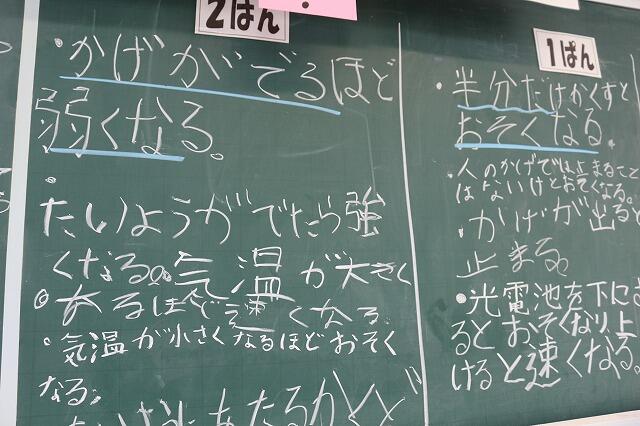 2はん
・かげがでるほど
弱くなる。
・
たいようがでたら強
くなる。気温が大きく
なるほど速くなる
・気温が小さくなるほどおそく
なる。
あたるかど
1ぱん
・半分だけかくすと
おそくなる.
・人のかげでは止まること
はないけどおそくなる。
・かげが出る
止まる。
・光電池を下に
るとおそくなり上
けると速くなる。